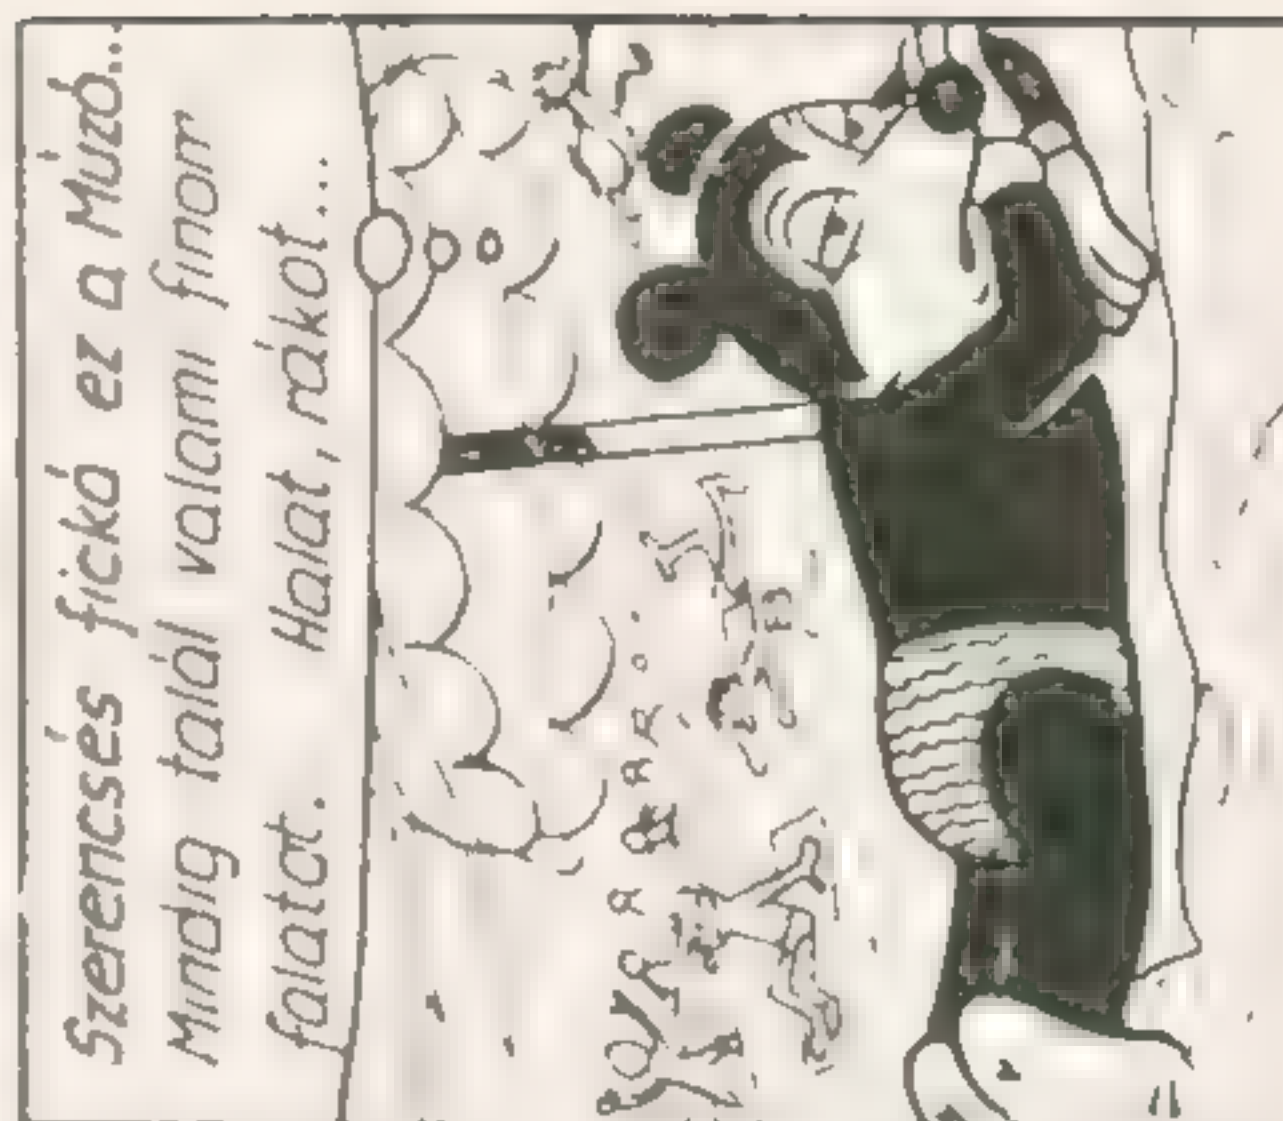 Szerencsés fickó ez a Múzó...
Mindig talál valami finom
falatot. Halat, rákot...